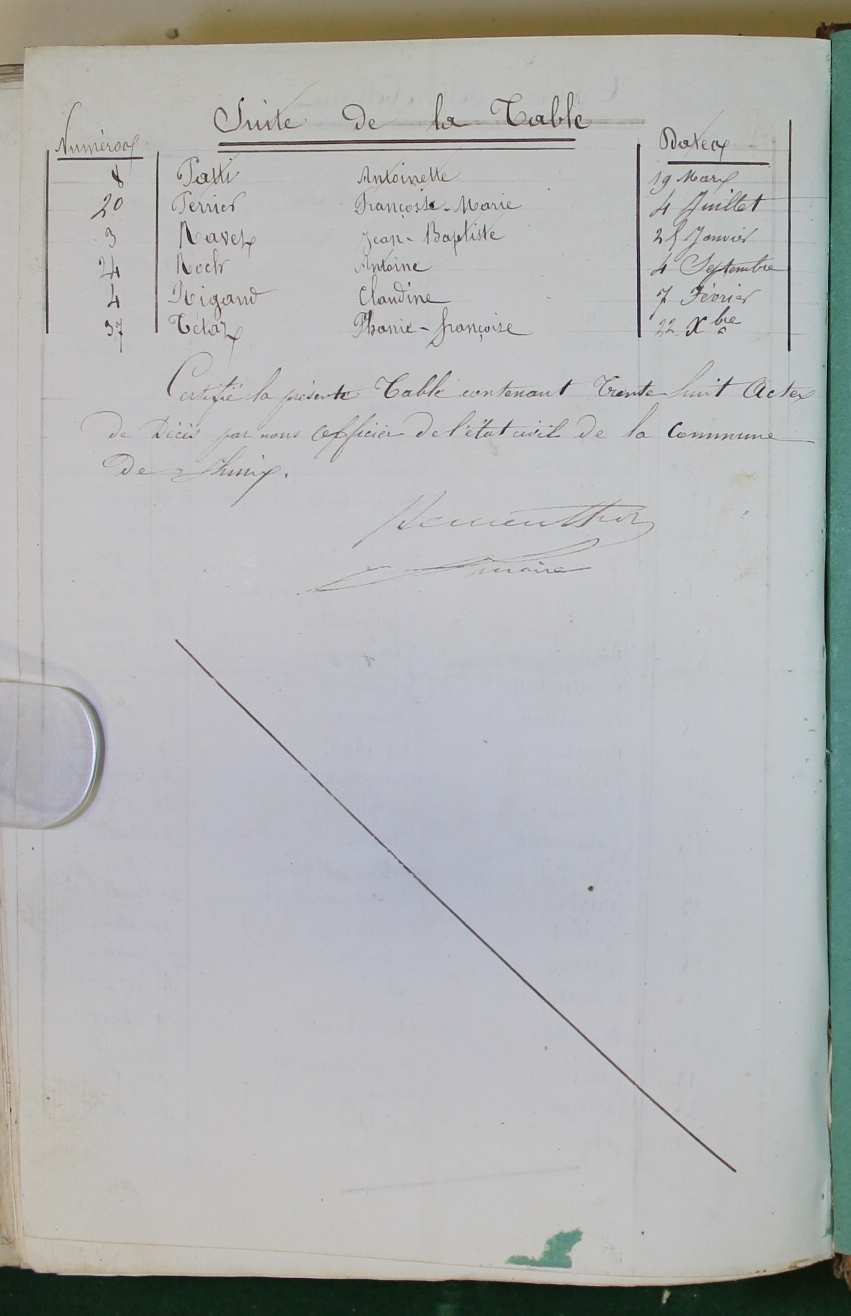 Suite de la Table
Numéros Dates
8 Patti Antoinette 19 Mars
20 Perrier Françoise-Marie 4 Juillet
3 Ravex Jean-Baptiste Janvier
24 Roch Antoine 4 Septembre
4 Rigaud Claudine 7 Février
37 Tétaz Phanie-françoise 22 Xbre
Certifié la présente Table contenant Trente huit Actes
de Décès par nous Officier de l'état civil de la Commune
de
maire